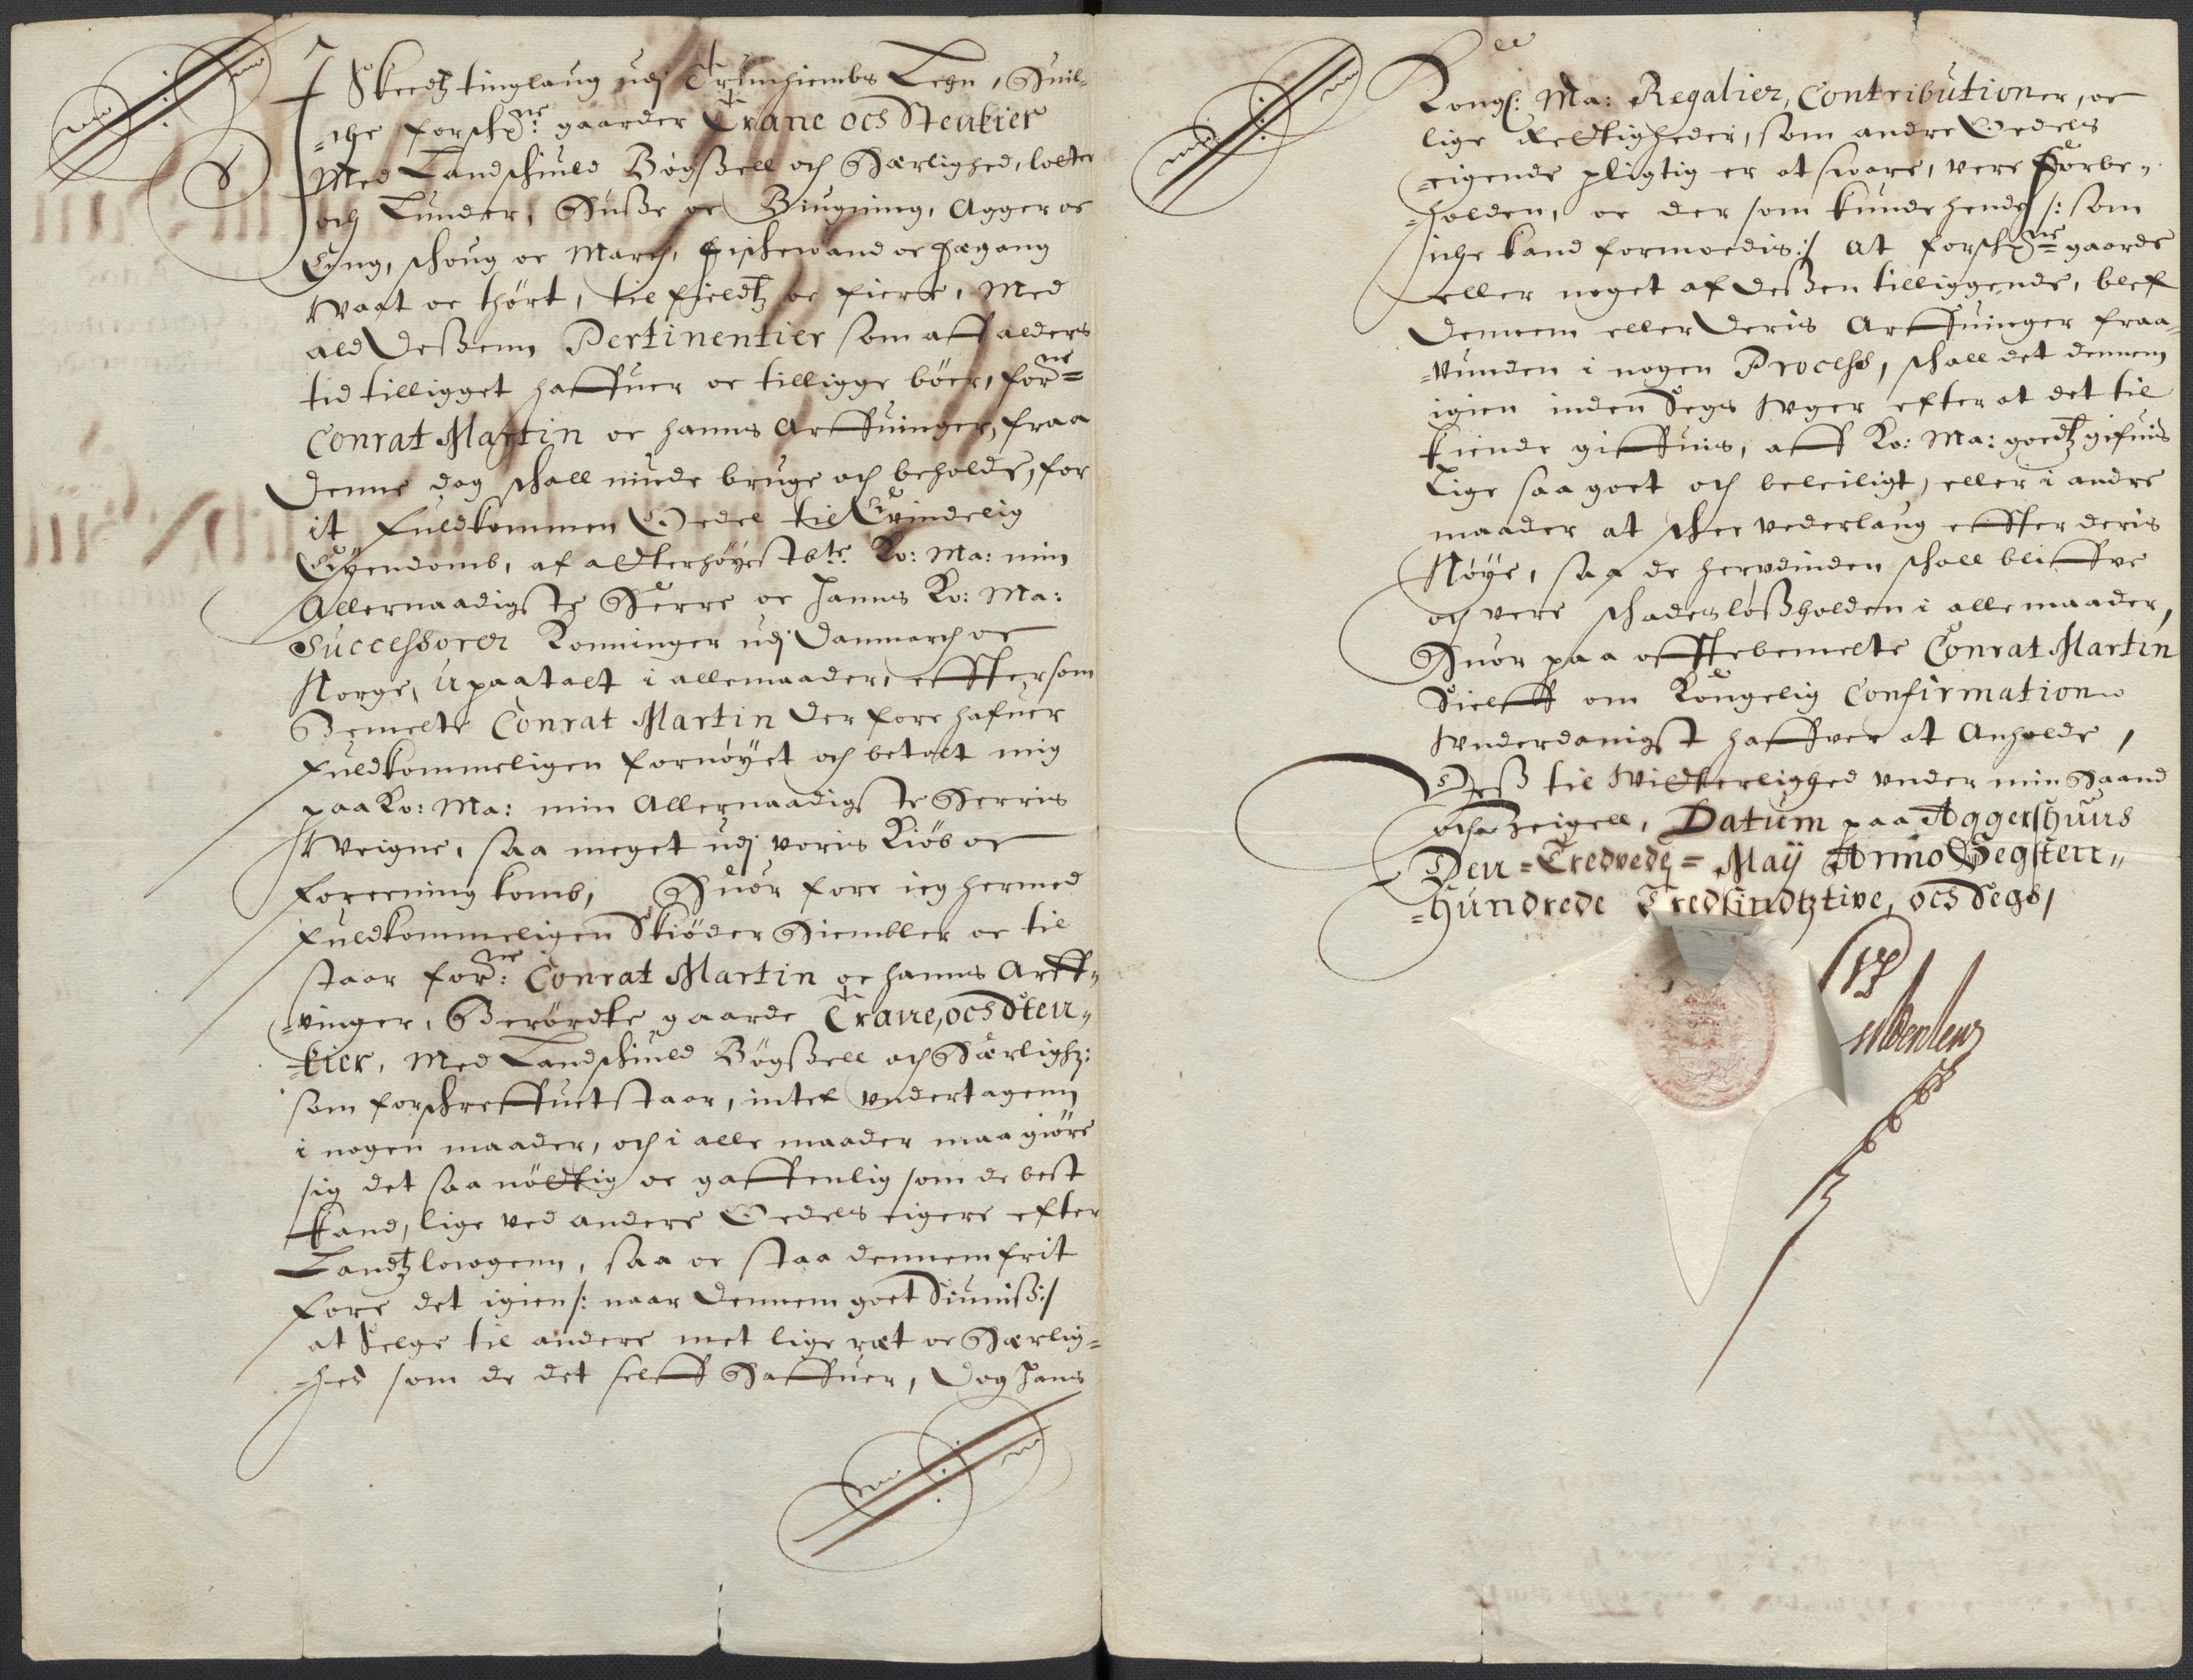 Skeedtz tinglaug udj Trundhiembs Lehn, Huil-
=che forschne: gaarder Trane och Stenkier
Med Landschiuld Bögszell och Herlighed, lotter
och Lunder, Husze oc Biugning, Agger oc
Eng, schoug oc March, fischevand oc fægang
Waat oc thört, til fieldtz oc fiere, Med
ald Deszenn Pertinentier som aff alders
tid tilligget haffuer oc tilligge böer, forne=
Conrat Martin oc hanns Arffuinger, fraa
Denne dag schall niude bruge och beholde, for
it fuldkommen Oedel til Ewindelig
Eyendomb, af alderhöyestbte: Ko: Ma: min
Allernaadigste Herre oc hanns Ko: Ma:
Successorer Konninger udj Danmarch oc
Norge, Upaatalt i alle maader, effter som
Bemelte Conrat Martin Der fore hafuer
fuldkommeligen fornöyet och betalt mig
paa Ko: Ma: min Allernaadigste Herris
Weigne, saa meget udj voris Kiöb oc
foreening komb, Huor fore ieg hermed
fuldkommeligen Skiöder Hiembler oc til
staar forne: Conrat Martin oc hanns Arff-
=vinger, Berördte gaarde Trane, och Sten-
=kier, Med Landschiuld Bögszell och Herlighz:
som forschreffuet staar, intet undertagenn
i nogen maader, och i alle maader maa giöre
sig det saa nöttig oc gaffenlig som de best
kand, lige ved andere Oedels eigere efter
Landtzlowgenn, saa oc staa dennem frit
fore det igien /: naar Dennem goet Siunisz :/
at Selge til andere met lige ræt oc Herlig=
=hed som de det selff Haffuer, Dog Hans
Kongl: Ma: Regalier, Contributioner, oc
lige Rettigheder, som andre Oedels
eigende pligtig er at svare, vere forbe-
=holden, oc der som kunde hende /: som
iche kand formoedis :/ At forschne gaarde
eller noget af deszen tilliggende, blef
Dennem eller Deris Arffuinger fraa-
=vunden i nogen Process, schall det dennem
igien inden Segs Uger efter at det til
kiende giffuis, aff Ko: Ma: goedtz gifuis
Lige saa goet och beleiligt, eller i andre
maader at schee vederlaug effter deris
Nöye, saa de herudinden schall bliffve
och vere schadeslöszholden i alle maader,
Huor paa offtebemelte Conrat Martin
Sielff om Kongelig Confirmation
Underdanigst haffver at Anholde,
Desz til Widterlighed under min Haand
och Zeigell, Datum paa Aggershuus
Den = Tredvede = May Anno Segsten-
=Hundrede Tredsindtztive, och Segs,